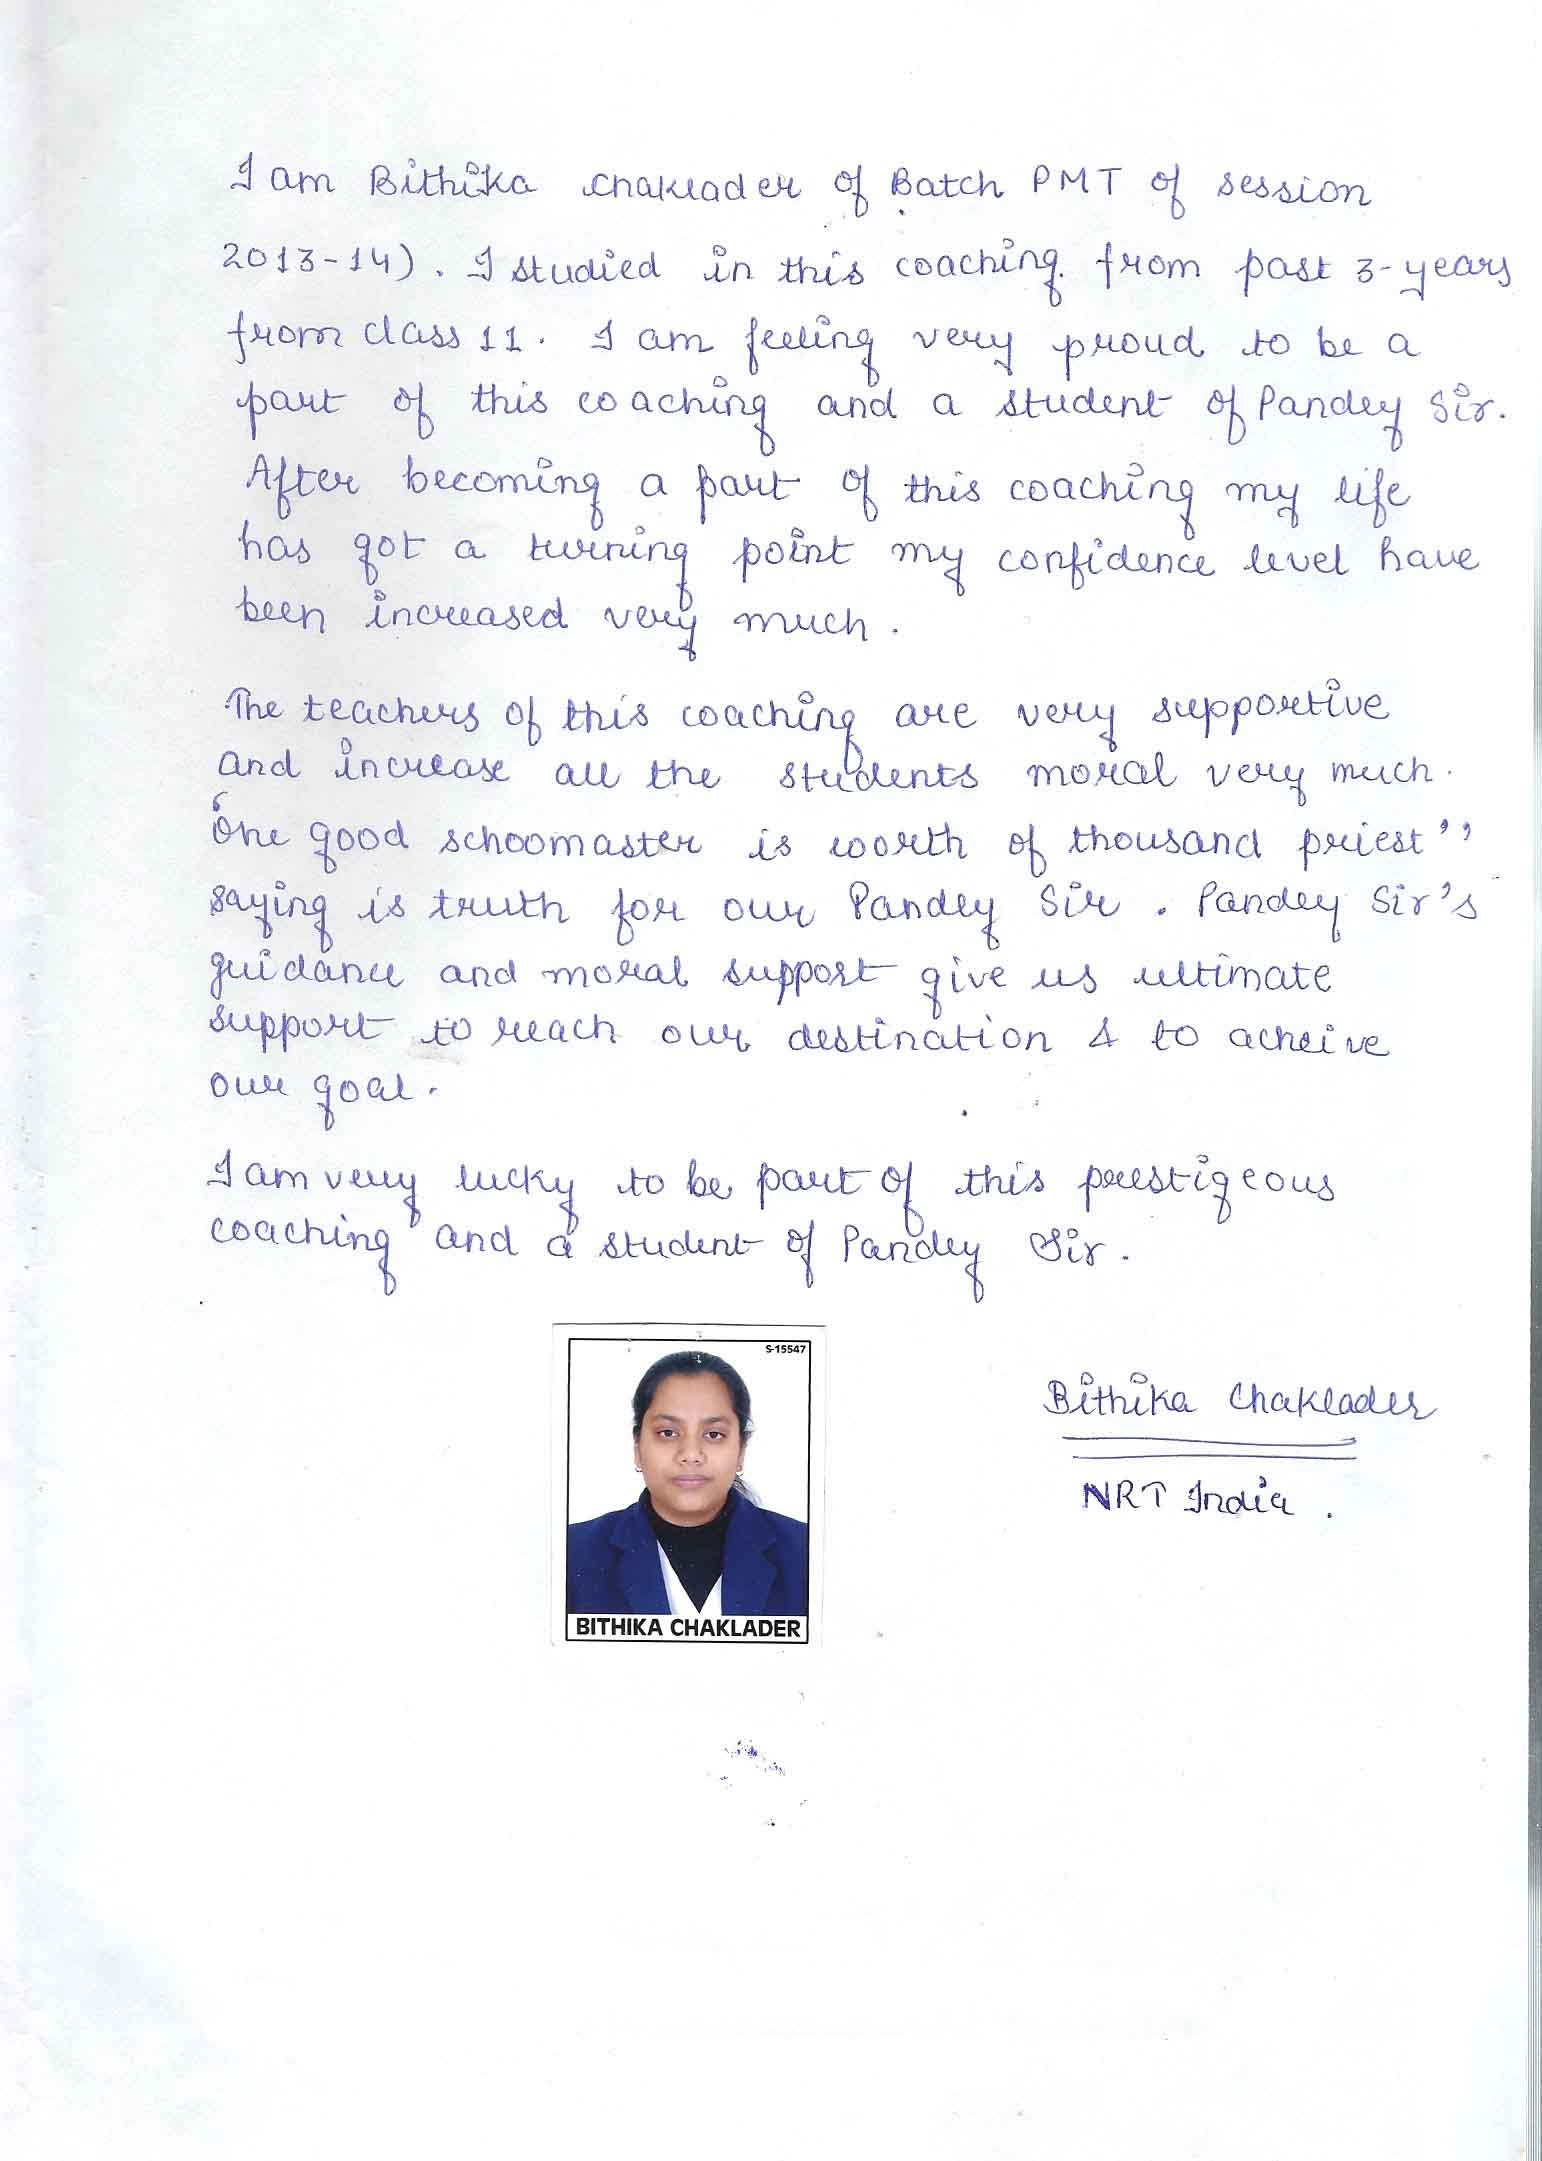 I am Bithika Chaklader of Batch PMT of session
2013-14). I studied in this coaching from past 3-years
from class 11. I am feeling very proud to be a
part of this coaching and a student of Pandey Sir.
After becoming a part of this coaching my life
has got a turning point my confidence level have
been increased very much.
The teachers of this coaching are very supportive
and increase all the students moral very much.
‘One good schoomaster is worth of thousand priest’’
saying is truth for our Pandey Sir. Pandey Sir's
guidance and moral support give us ultimate
support to reach our destination & to acheive
our goal.
I am very lucky to be part of this prestigeous
coaching and a student of Pandey Sir.
S-15547
Bithika Chaklader
NRT India.
BITHIKA CHAKLADER